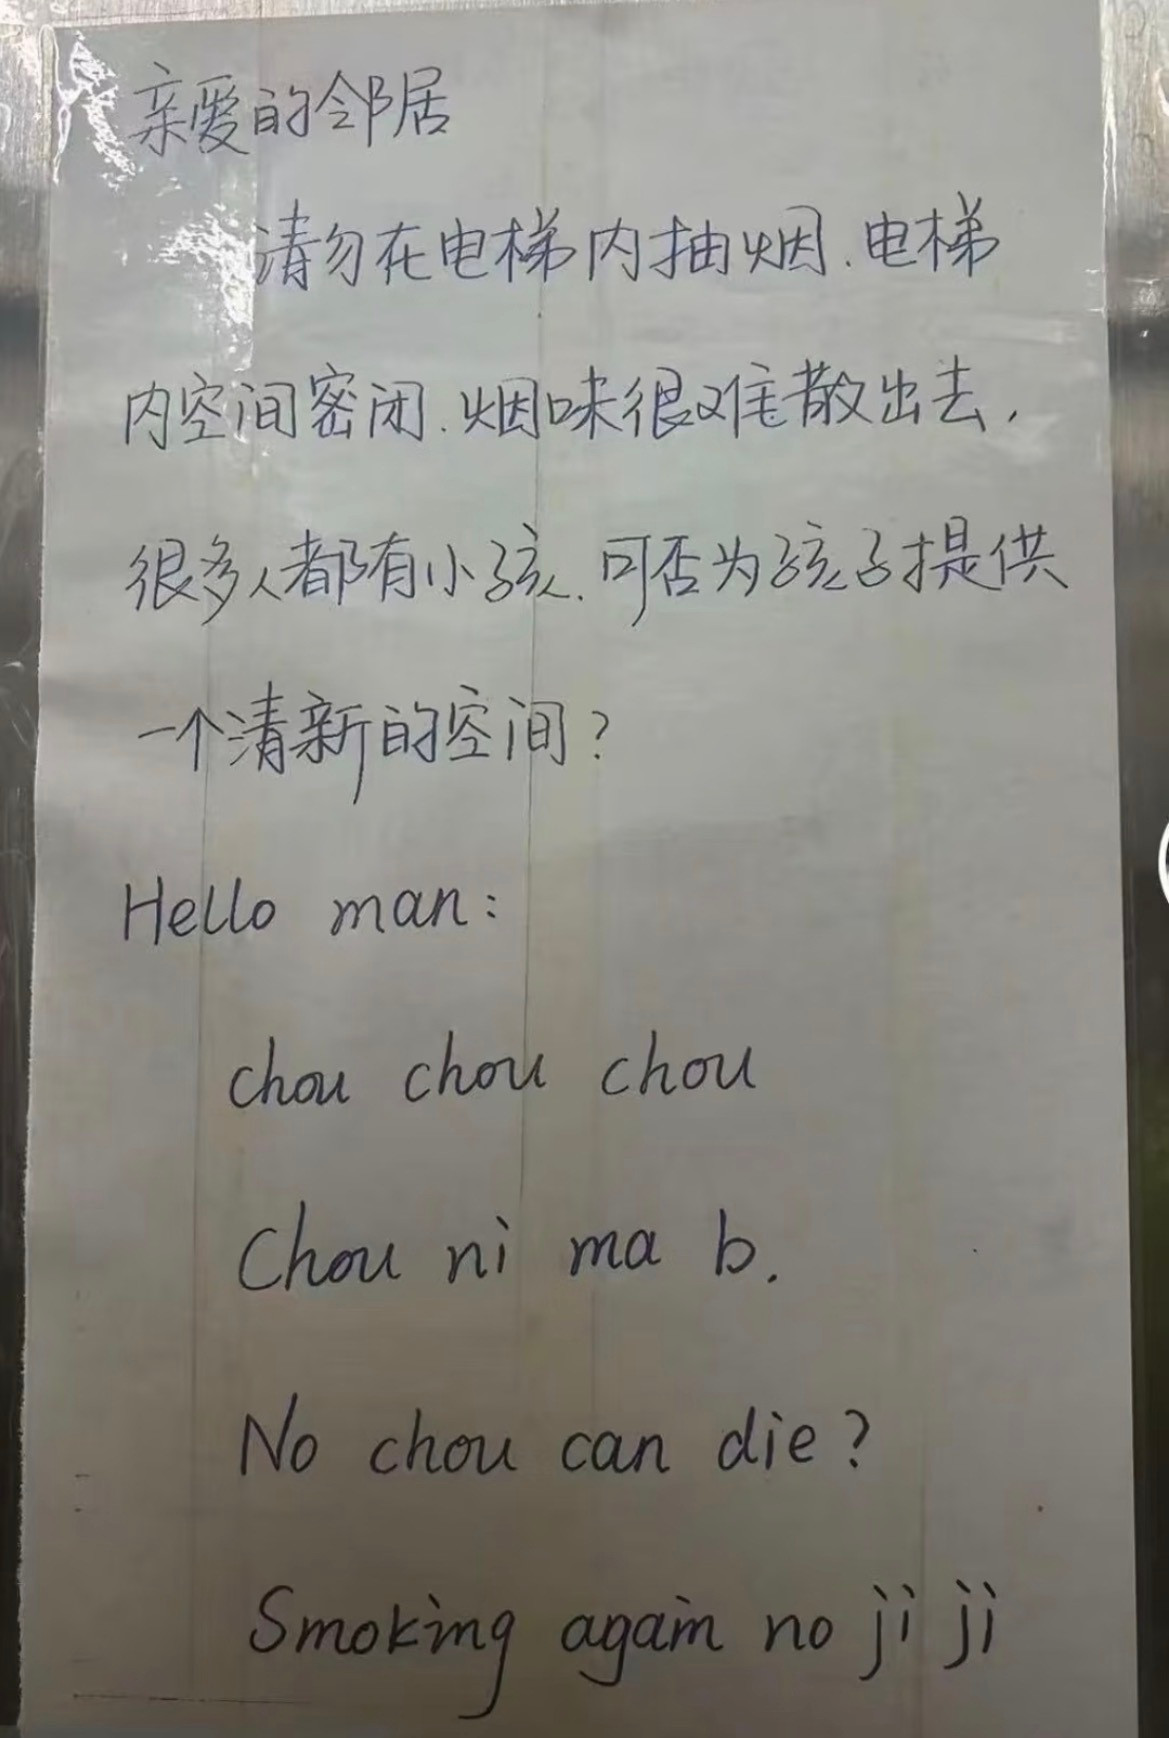 亲爱的邻居
请勿在电梯内抽烟.电梯
内空间密闭.烟味很难散出去,
很多人都有小孩.可否为孩子提供
一个清新的空间?
Hello man:
chou chou chou
Chou ni ma b.
No chou can die?
Smoking again no ji ji